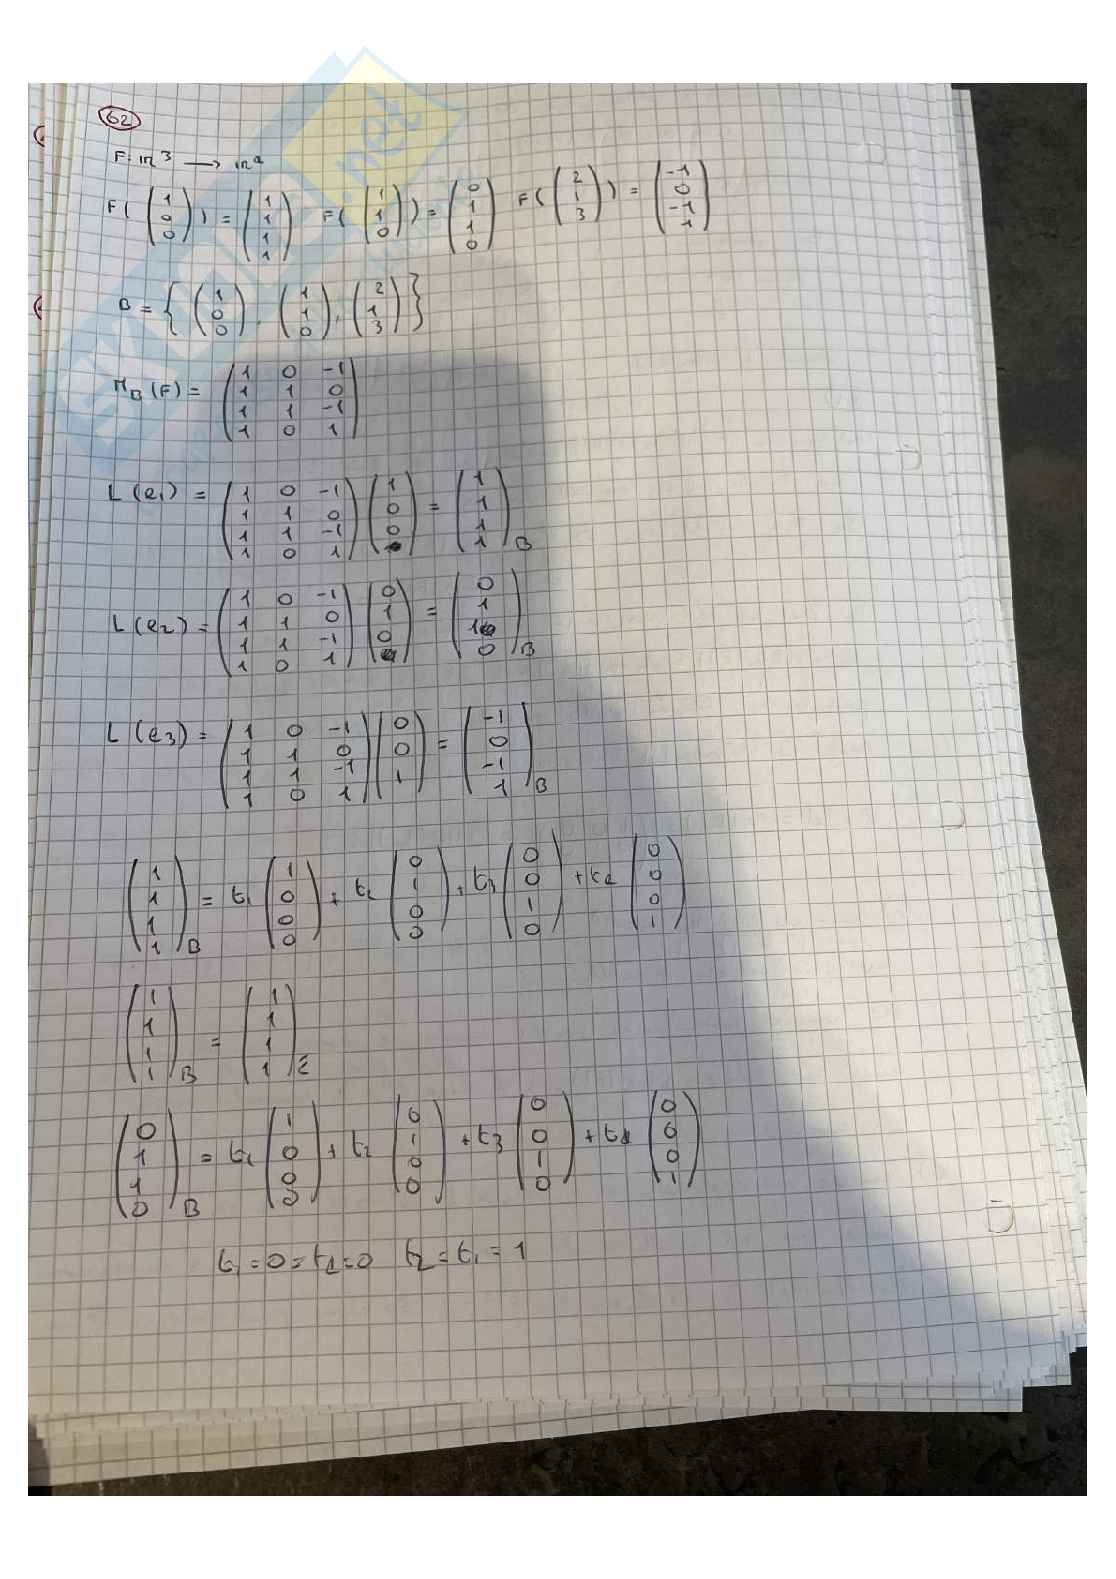 62
F: ℝ³ ⟶ ℝ⁴
F((1 0 0)) = (1 1 1 1) F((1 1 0)) = (0 1 1 0) F((2 1 3)) = (-1 0 -1 1)
B = {(1 0 0), (1 1 0), (2 1 3)}
M_B(F) = (1 0 -1
1 1 0
1 1 -1
1 0 1)
L(e₁) = (1 0 -1
1 1 0
1 1 -1
1 0 1) (1 0 0) = (1 1 1 1)_B
L(e₂) = (1 0 -1
1 1 0
1 1 -1
1 0 1) (0 1 0) = (0 1 1 0)_B
L(e₃) = (1 0 -1
1 1 0
1 1 -1
1 0 1) (0 0 1) = (-1 0 -1 1)_B
(1 1 1 1)_B = t₁ (1 0 0 0) + t₂ (0 1 0 0) + t₃ (0 0 1 0) + t₄ (0 0 0 1)
(1 1 1 1)_B = (1 1 1 1)_E
(0 1 1 0)_B = t₁ (1 0 0 0) + t₂ (0 1 0 0) + t₃ (0 0 1 0) + t₄ (0 0 0 1)
t₁ = 0 = t₄ = 0 t₂ = t₁ = 1